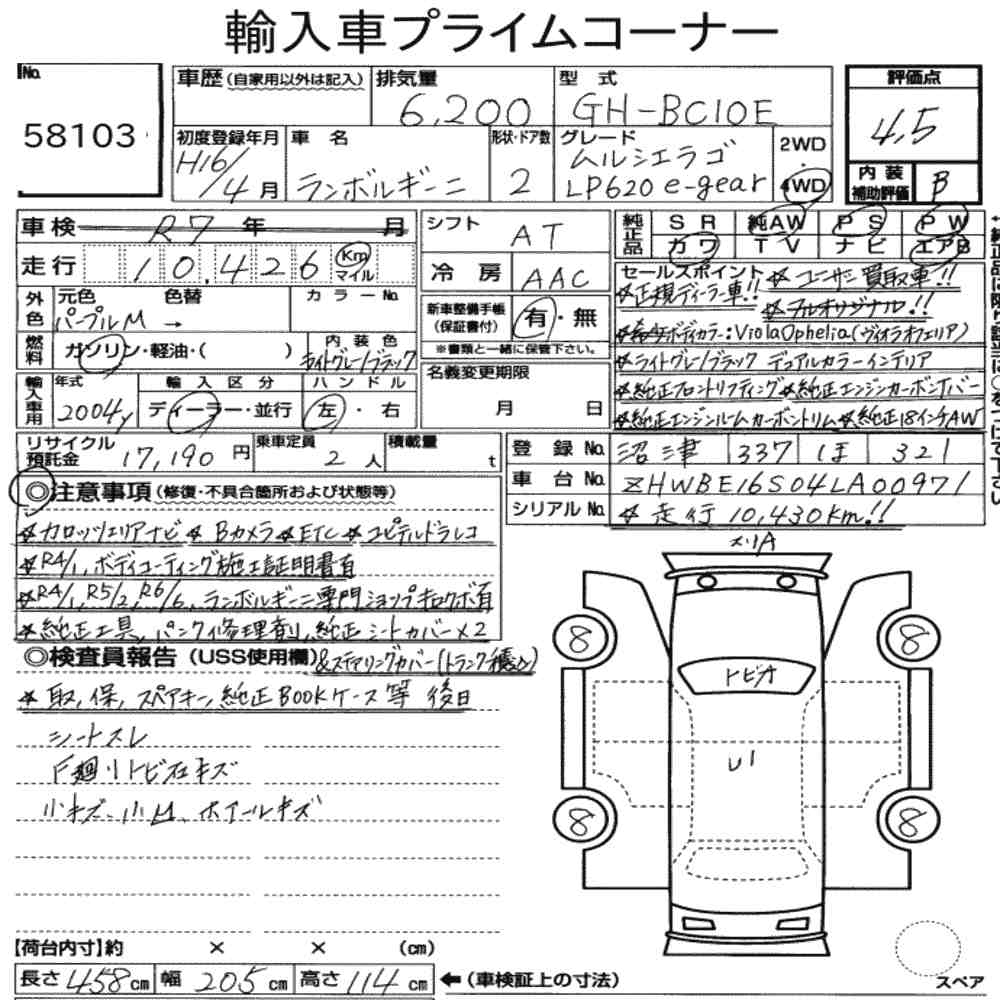 輸入車プライムコーナー
No.
58103
車歴(自家用以外は記入)
排気量
6,200
型 式
GH-BC10E
評価点
4.5
初度登録年月
H16/4月
車 名
ランボルギーニ
形状・ドア数
2
グレード
ムルシエラゴ
LP620 e-gear
2WD
・
4WD
内装
補助評価
B
車検 R7 年 月
シフト
AT
純正品
SR 純AW PS PW
カワ TV ナビ エアB
走行 10,426 Km
マイル
冷房
AAC
セールスポイント ☆ユーザー買取車!!
☆正規ディーラー車!! ☆フルオリジナル!!
外色
元色 色替
カラーNo.
パープルM →
新車整備手帳
(保証書付)
有・無
☆希少ボディカラー:ViolaOphelia(ヴィオラオフェリア)
燃料
ガソリン・軽油・( )
内装色
ライトグレー/ブラック
※書類と一緒に保管下さい。
☆ライトグレー/ブラック デュアルカラーインテリア
輸入車用
年式
2004y
輸入区分
ディーラー・並行
ハンドル
左・右
名義変更期限
月 日
☆純正フロントリフティング☆純正エンジンカーボンカバー
☆純正エンジンルームカーボントリム☆純正18インチAW
リサイクル
預託金
17,190円
乗車定員
2人
積載量
t
登録No.
沼津 337 ほ 321
車台No.
ZHWBE16S04LA00971
シリアルNo.
☆走行10,430km!!
◎注意事項(修復・不具合箇所および状態等)
☆カロッツェリアナビ ☆Bカメラ ☆ETC ☆ユピテルドラレコ
☆R4/1、ボディコーティング施工証明書有
☆R4/1,R5/2,R6/6,ランボルギーニ専門ショップ記録簿有
☆純正工具,パンク修理剤,純正シートカバー×2
&ステアリングカバー(トランク積込)
◎検査員報告(USS使用欄)
☆取,保,スペアキー,純正BOOKケース等 後日
シートスレ
下廻りトビ石キズ
小キズ、小凹、ホイールキズ
メリA
8
8
トビオ
U1
8
8
スペア
【荷台内寸】約 × × (cm)
長さ458cm 幅205cm 高さ114cm ←(車検証上の寸法)